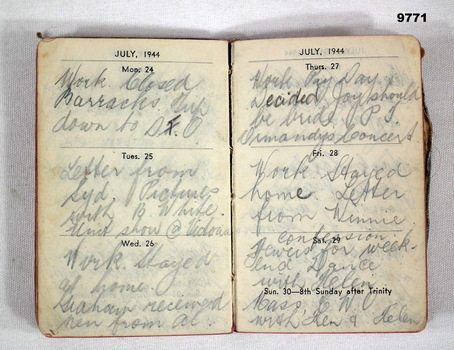 9771
JULY, 1944
Mon. 24
Work. Closed
Barracks.
down to D.F.O.
Tues. 25
Letter from
Syd. Pictures
with B. White.
show @
Wed. 26
Work. Stayed
at home.
Graham received
from Al.
JULY, 1944
Thurs. 27
Work. Pay Day.
Decided Joy should
be bride. P.P.S.
Ormandys Concert
Fri. 28
Work. Stayed
home. Letter
from Winnie.
confession.
Sat. 29
for week-
end Dance
with Helen
Sun. 30—8th Sunday after Trinity
Mass,
with Len & Helen